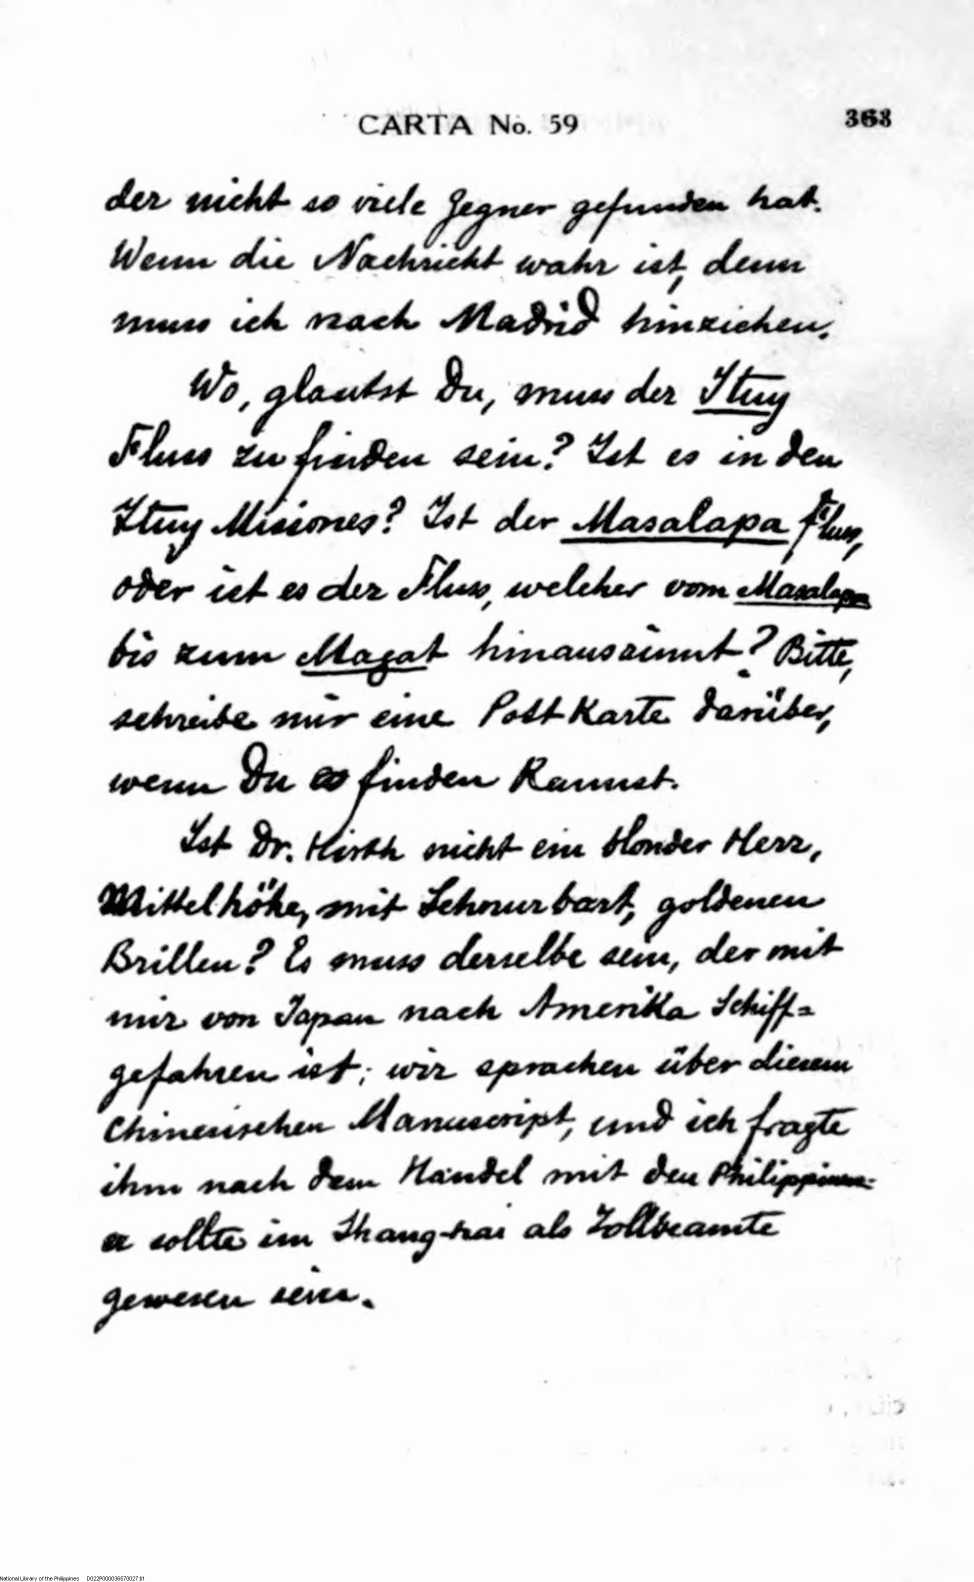 CARTA No. 59
363
der nicht so viele Gegner gefunden hat.
Wenn die Nachricht wahr ist, denn
muss ich nach Madrid hinziehen.
Wo, glaubst Du, muss der Ituy
Fluss zu finden sein? Ist es in den
Ituy Misiones? Ist der Masalapa Fluss,
oder ist es der Fluss, welcher vom Masalapa
bis zum Magat hinausrinnt? Bitte,
schreibe mir eine Postkarte darüber,
wenn Du es finden kannst.
Ist Dr. Hirth nicht ein blonder Herr,
Mittelhöhe, mit Schnurbart, goldenen
Brillen? Es muss derselbe sein, der mit
mir von Japan nach Amerika Schiff=
gefahren ist; wir sprachen über diesem
chinesischen Manuscript, und ich fragte
ihm nach dem Handel mit den Philippinen:
er sollte im Shang-hai als Zollbeamte
gewesen sein.
National Library of the Philippines